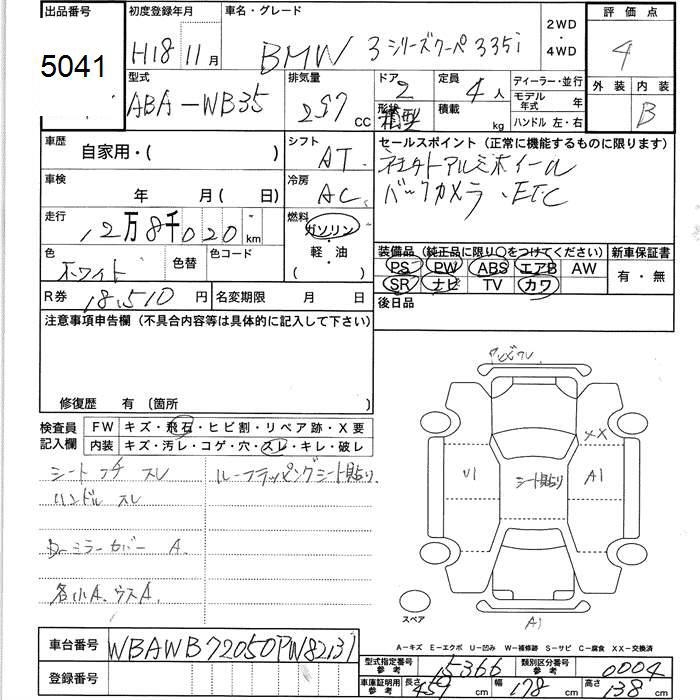 出品番号 初度登録年月 車名・グレード 2WD・4WD 評価点
5041 H18 11月 BMW 3シリーズクーペ 335i 4
型式 排気量 ドア 定員 ディーラー・並行 外装 内装
ABA-WB35 297 cc 2 4人 モデル年式 年 B
形状 箱型 積載 kg ハンドル 左・右
車歴 シフト セールスポイント (正常に機能するものに限ります)
自家用・( ) AT アルミホイール
車検 冷房 バックカメラ、ETC
年 月(日) AC
走行 燃料
12万8千020km ガソリン・軽・油 ( )
装備品 (純正品に限り○をつけてください) 新車保証書
色 色替 色コード PS PW ABS エアB AW 有・無
ホワイト SR ナビ TV カワ
R券 18,510円 名変期限 月 日 後日品
注意事項申告欄 (不具合内容等は具体的に記入して下さい)
修復歴 有 〔箇所 〕
検査員記入欄 FW キズ・飛石・ヒビ割・リペア跡・X要
内装 キズ・汚レ・コゲ・穴・スレ・キレ・破レ
シート フチ スレ ルーフラッピングシート貼り
ハンドル スレ
Dミラーカバー A.
各小A. ウスA.
XX
U1 シート貼り A1
スペア A1
A-キズ E-エクボ U-凹み W-補修跡 S-サビ C-腐食 XX-交換済
車台番号 WBAWB72050PW82131
型式指定番号 参考 15366 類別区分番号 参考 0004
登録番号
車庫証明用 参考 長さ 459cm 幅 178cm 高さ 138cm